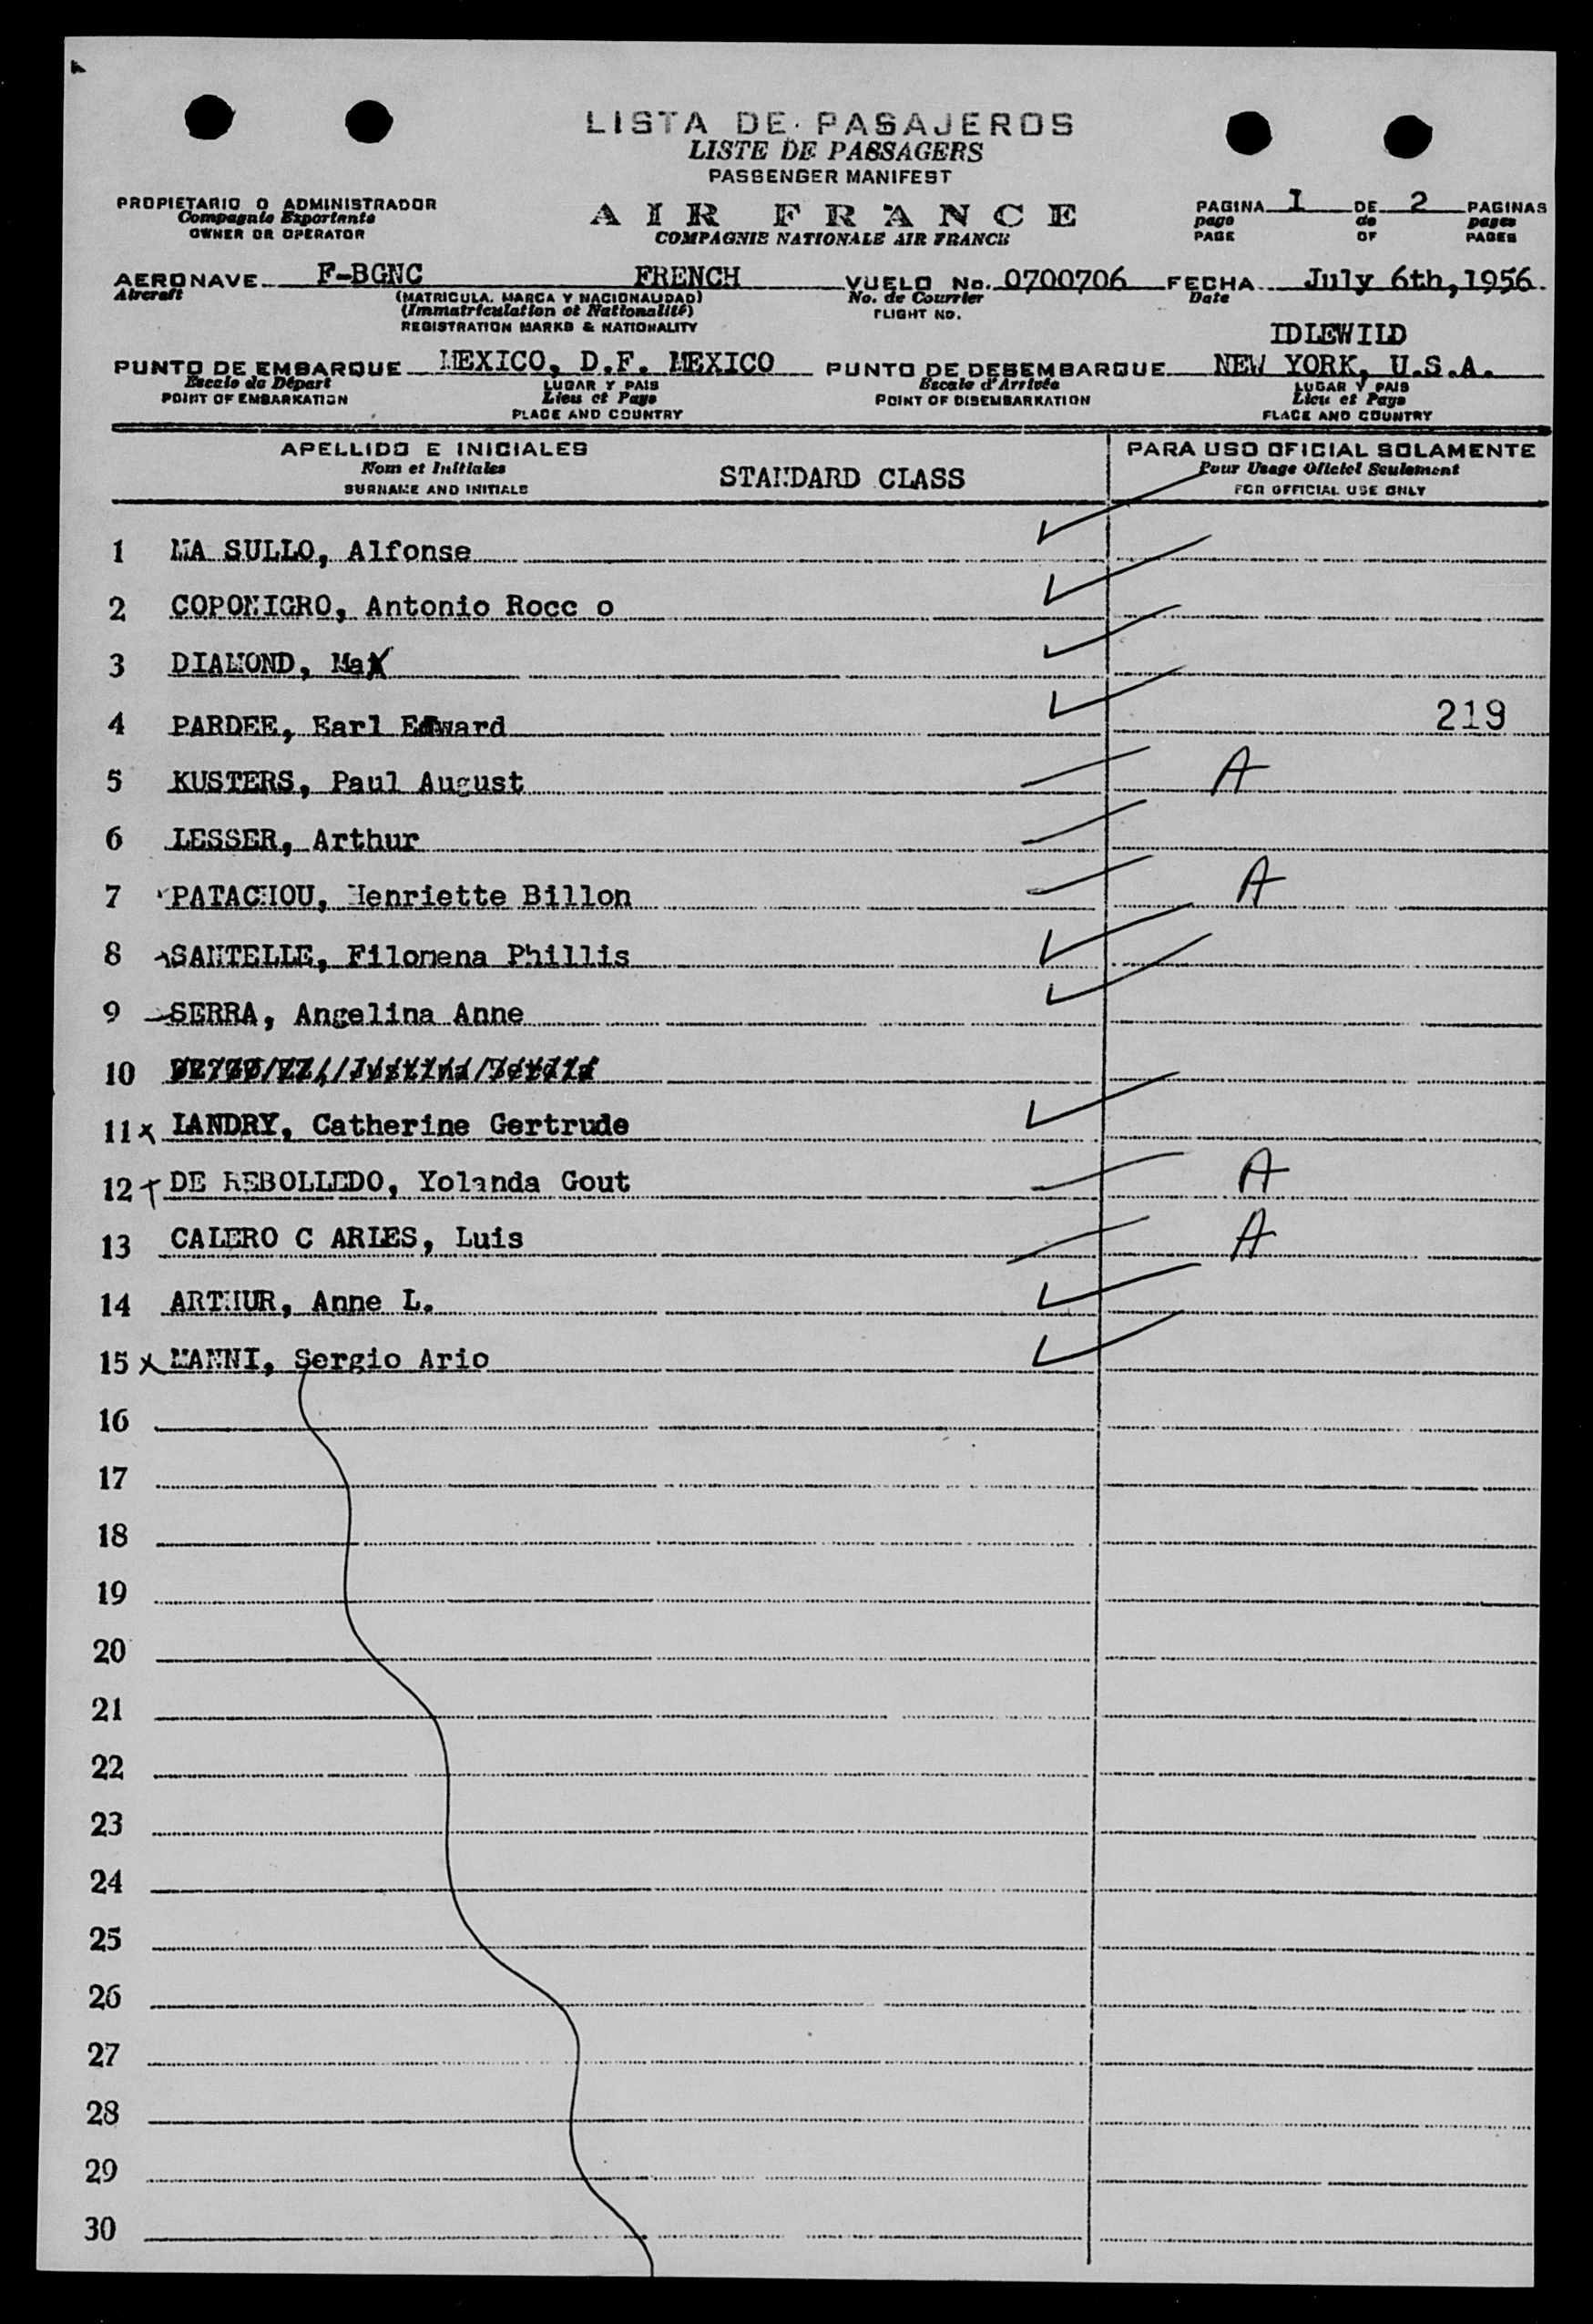 LISTA DE PASAJEROS
LISTE DE PASSAGERS
PASSENGER MANIFEST
PROPIETARIO O ADMINISTRADOR
Compagnie Exportante
OWNER OR OPERATOR
AIR FRANCE
COMPAGNIE NATIONALE AIR FRANCE
PAGINA 1 DE 2 PAGINAS
page de pages
PAGE OF PAGES
AERONAVE F-BGNC FRENCH VUELO No. 0700706 FECHA July 6th, 1956
Aircraft (MATRICULA, MARCA Y NACIONALIDAD) No. de Courrier Date
(Immatriculation et Nationalité) FLIGHT NO.
REGISTRATION MARKS & NATIONALITY
IDLEWILD
PUNTO DE EMBARQUE MEXICO, D.F. MEXICO PUNTO DE DESEMBARQUE NEW YORK, U.S.A.
Escale de Départ LUGAR Y PAIS Escale d'Arrivée LUGAR Y PAIS
POINT OF EMBARKATION Lieu et Pays POINT OF DISEMBARKATION Lieu et Pays
PLACE AND COUNTRY PLACE AND COUNTRY
APELLIDO E INICIALES PARA USO OFICIAL SOLAMENTE
Nom et Initiales STANDARD CLASS Pour Usage Officiel Seulement
SURNAME AND INITIALS FOR OFFICIAL USE ONLY
1 MA SULLO, Alfonse
2 COPONIGRO, Antonio Rocc o
3 DIAMOND, Max
4 PARDEE, Earl Edward 219
5 KUSTERS, Paul August A
6 LESSER, Arthur
7 PATACHOU, Henriette Billon A
8 SANTELLE, Filomena Phillis
9 SERRA, Angelina Anne
10
11 x LANDRY, Catherine Gertrude
12 DE REBOLLEDO, Yolanda Gout A
13 CALERO C ARLES, Luis A
14 ARTHUR, Anne L.
15 x MANNI, Sergio Ario
16
17
18
19
20
21
22
23
24
25
26
27
28
29
30